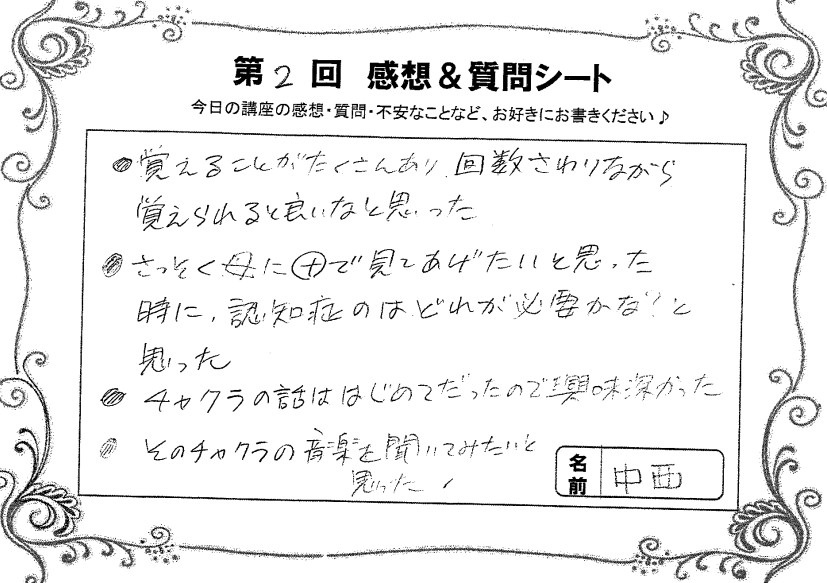 第2回 感想&質問シート
今日の講座の感想・質問・不安なことなど、お好きにお書きください♪
●覚えることがたくさんあり、回数さわりながら
覚えられると良いなと思った
●さっそく母に㊉で見てあげたいと思った
時に、認知症のはどれが必要かな?と
思った
●チャクラの話ははじめてだったので興味深かった
●そのチャクラの音楽を聞いてみたいと
思った
名前 中西